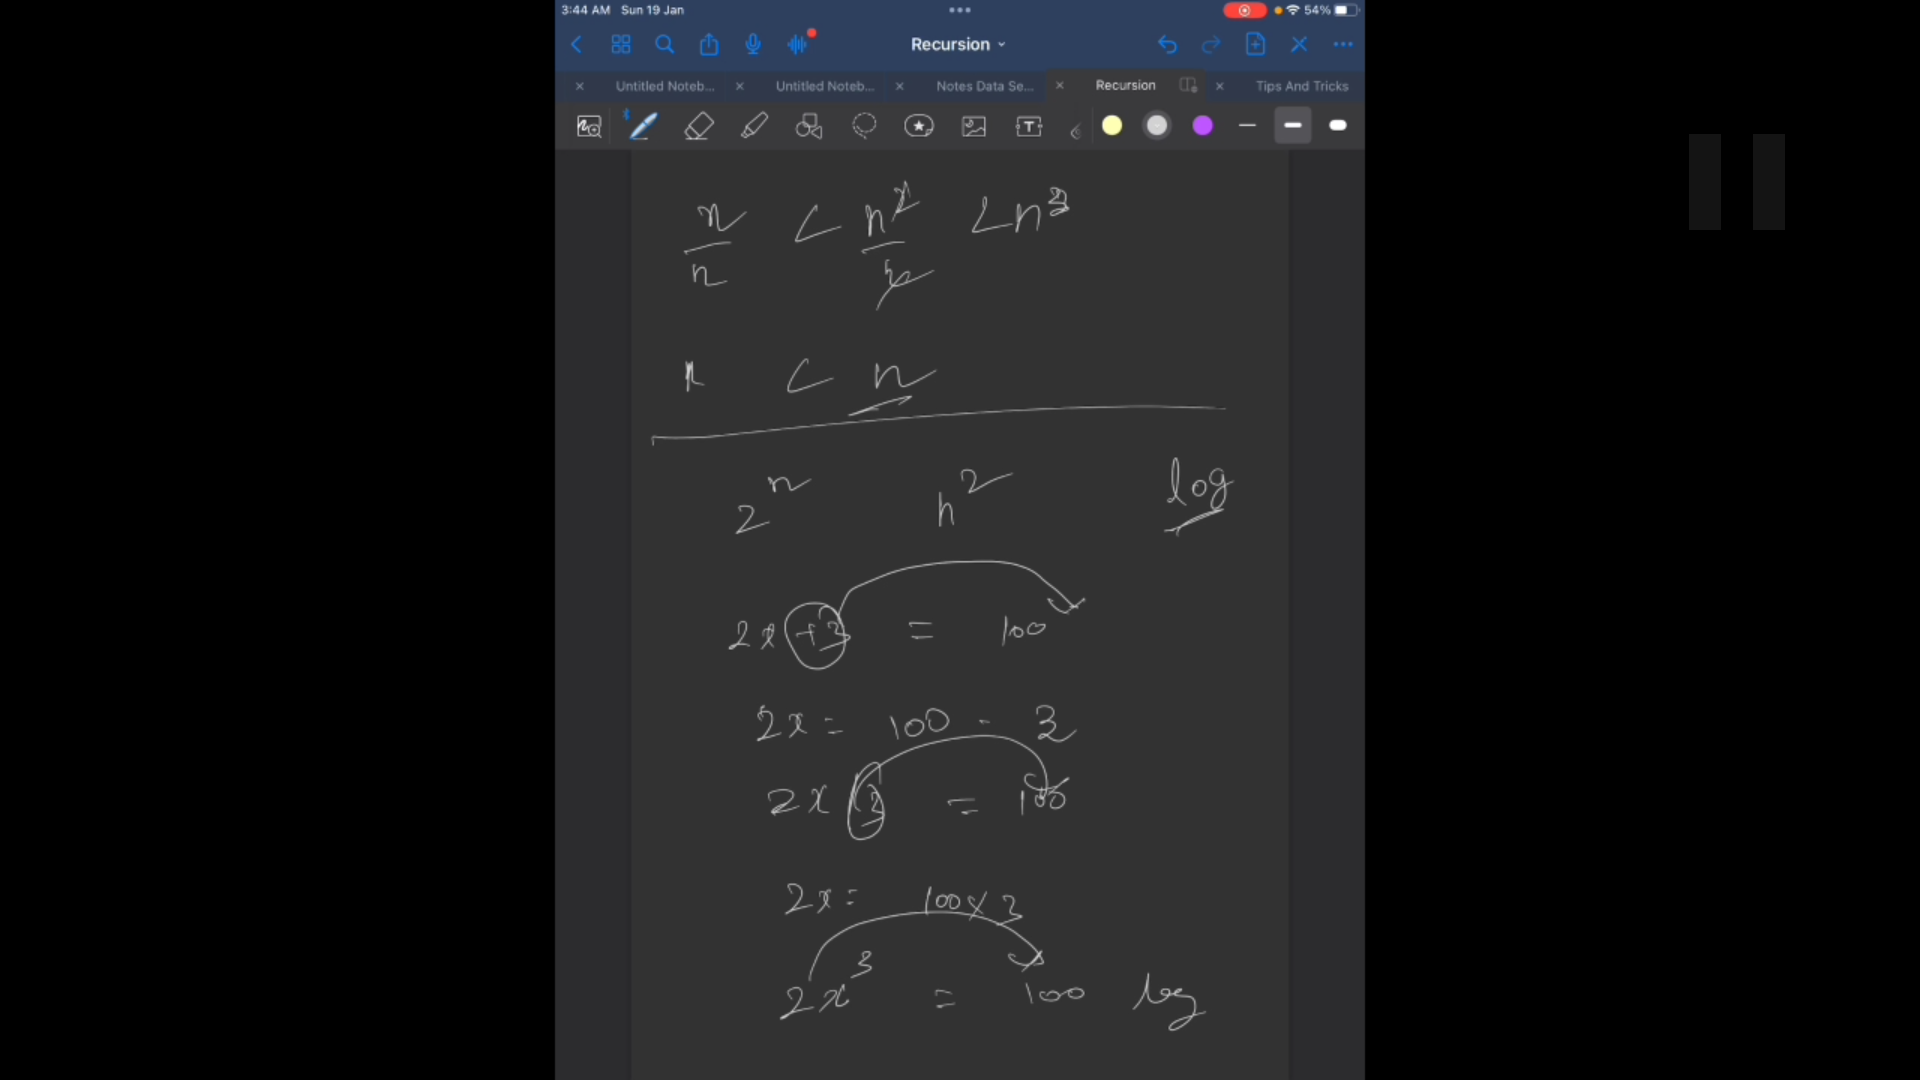 3:44 AM Sun 19 Jan 54%
Recursion
Untitled Noteb... Untitled Noteb... Notes Data Se... Recursion Tips And Tricks
n/n < n²/n < n³
1 < n
2ⁿ n² log
2x +3 = 100
2x = 100 - 3
2x = 100
2x = 100 x 3
2x³ = 100 log